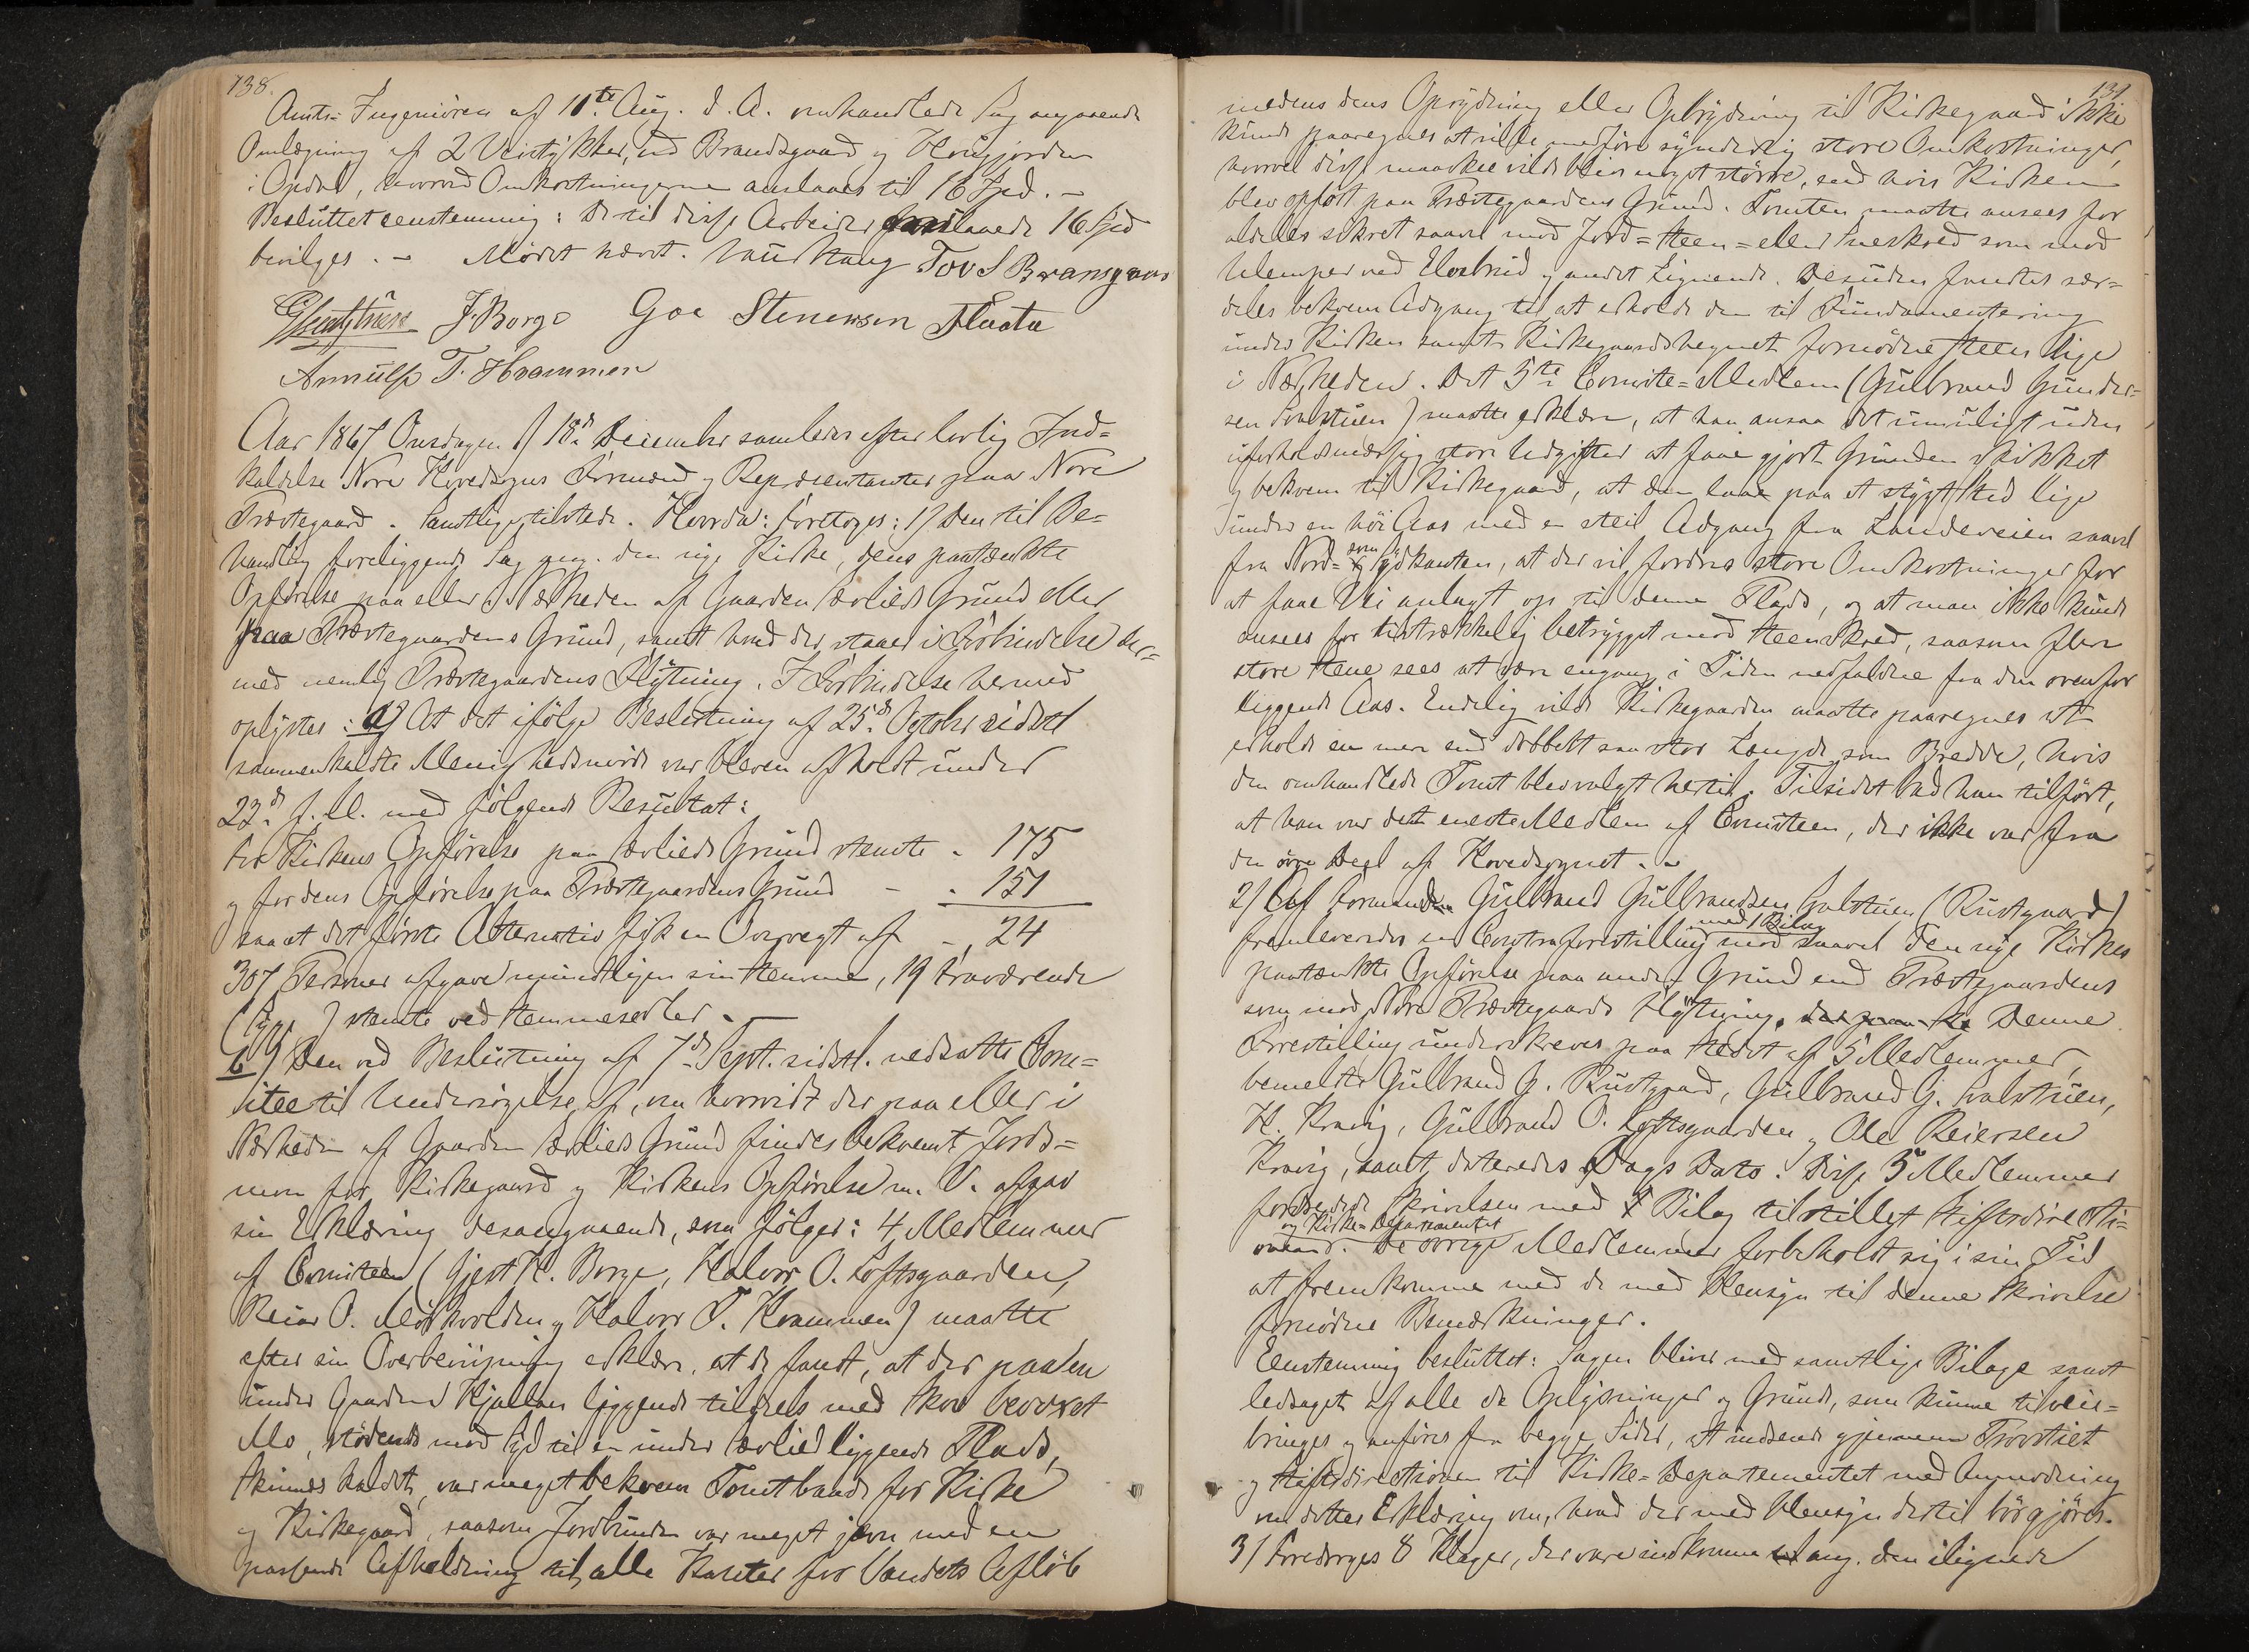 138.
Amts-Ingeniören af 10te Aug. d. A. omhandlede Sag angaaende
Omlægning af 2 Veistykker, ved Brandsgaard og Hougjorden
i Opdal, hvorved Omkostningerne anslaaes til 16 Spd. -
Besluttet eenstemmig: De til disse Arbeider anslaaede 16 Spd
bevilges. - Mödet hævet. Tov S Bransgaard
J. Borge Goe Stenersen Flaata
Annulf T. Hrammen
Aar 1867 Onsdagen d 18d December samledes efter lovlig Ind-
kaldelse Nore Hovedsogns Formænd og Repræsentanter paa Nore
Præstegaard. Samtlige tilstede. Hvorda: foretoges: 1) Den til Be-
handling foreliggende Sag ang. den nye Kirke, dens paatænkte
Opförelse paa eller i Nærheden af Gaarden Grund eller
paa Præstegaardens Grund, samt hvad der staaer i Forbindelse der-
med nemlig Præstegaardens Flytning. I Forbindelse hermed
oplystes: a) At det ifölge Beslutning af 25de October sidstl
sammenkaldte Menighedsmöde var bleven afholdt under
23de f. M. med fölgende Resultat:
for Kirkens Opförelse paa Grund stemte - 175
og for dens Opförelse paa Præstegaardens Grund - - 151
saa at det förste Alternativ fik en Overvægt af - 24
307 Personer afgave mundtligen sin Stemme, 19 fraværende
( ) stemte ved Stemmesedler. -
b) Den ved Beslutning af 7de Sept. sidstl. nedsatte Com-
itee til Undersögelse af, om hvorvidt der paa eller i
Nærheden af Gaarden Grund findes bekvemt Jords-
mon for Kirkegaard og Kirkens Opförelse m. V. afgav
sin Erklæring desangaaende, som fölger: 4 Medlemmer
af Comiteen (Gjest H. Borge, Halvor O. Loftsgaarden,
Reiar O. og Halvor T. Hrammen) maatte
efter sin Overbeviisning erklære, at de fandt, at der paa den
under Gaarden liggende tildeels med Skov bevoxet
Mo, stödende mod Syd til en under liggende Plads,
kaldet, var meget bekvem Tomt baade for Kirke
og Kirkegaard, saasom Jordbunden var meget jevn med en
passende Afheldning til alle Kanter for Vandets Aflöb
139
medens dens Oprydning eller Opbrydning til Kirkegaard ikke
kunde paaregnes at ville medföre synderlig store Omkostninger,
hvorvel disse maaskee vilde blive noget större, end hvis Kirken
blev opfört paa Præstegaardens Grund. Tomten maatte ansees for
aldeles sikret saavel mod Jord- Steen- eller Sneskred som mod
Ulemper ved Elvebrud og andet Lignende. Desuden fandtes sær-
deles bekvem Adgang til at erholde den til Fundamentering
under Kirken samt Kirkegaardshegnet fornödne Steen lige
i Nærheden. Det 5te Comite-Medlem (Gulbrand Gunder-
sen ) maatte erklære, at han ansaa det umuligt uden
uforholdsmæssig store Udgifter at faae gjort Grunden skikket
og bekvem til Kirkegaard, at den laae paa et stygt Sted lige
under en höi Aas med en steil Adgang fra Landeveien saavel
fra Nord- som Sydkanten, at der vil fordres store Omkostninger for
at faae Vei anlagt op til denne Plads, og at man ikke kunde
ansees for tilstrækkelig betrygget mod Steenskred, saasom flere
store Stene sees at være engang i Tiden nedfaldne fra den ovenfor
liggende Aas. Endelig vilde Kirkegaarden maatte paaregnes at
erholde en mere end dobbelt saa stor Længde som Bredde, hvis
den omhandlede Tomt blev valgt hertil. Tilsidst bad han tilfört,
at han var det eneste Medlem af Comiteen, der ikke var fra
den övre Deel af Hovedsognet. -
2) Af Formanden Gulbrand Gulbrandsen (Rustgaard)
fremleveredes en Contraforestilling med 1 Bilag mod saavel den nye Kirkes
paatænkte Opförelse paa anden Grund end Præstegaardens
som mod Nore Præstegaards Flytning. Denne
Forestilling underskreves paa Stedet af 5 Medlemmer,
bemeldte Gulbrand G. Rustgaard, Gulbrand G. ,
H. Kravig, Gulbrand O. Loftsgaarden og Ole Reiersen
Kravig, samt dateredes Dags Dato. Disse 5 Medlemmer
fordrede Skrivelsen med Bilag tilstillet Stiftsdirecti-
onen og Kirke-Departementet. De övrige Medlemmer forbeholdt sig i sin Tid
at fremkomme med de med Hensyn til denne Skrivelse
fornödne Bemærkninger.
Eenstemmig besluttet: Sagen bliver med samtlige Bilage samt
ledsaget af alle de Oplysninger og Grunde, som kunne tilveie-
bringes og anföres fra begge Sider, at indsende gjennem Provstiet
og Stiftsdirectionen til Kirke-Departementet med Anmodning
om dettes Erklæring om, hvad der med Hensyn dertil bör gjöres.
3) Foredroges 8 Klager, der vare indkomne ang. den ilignede